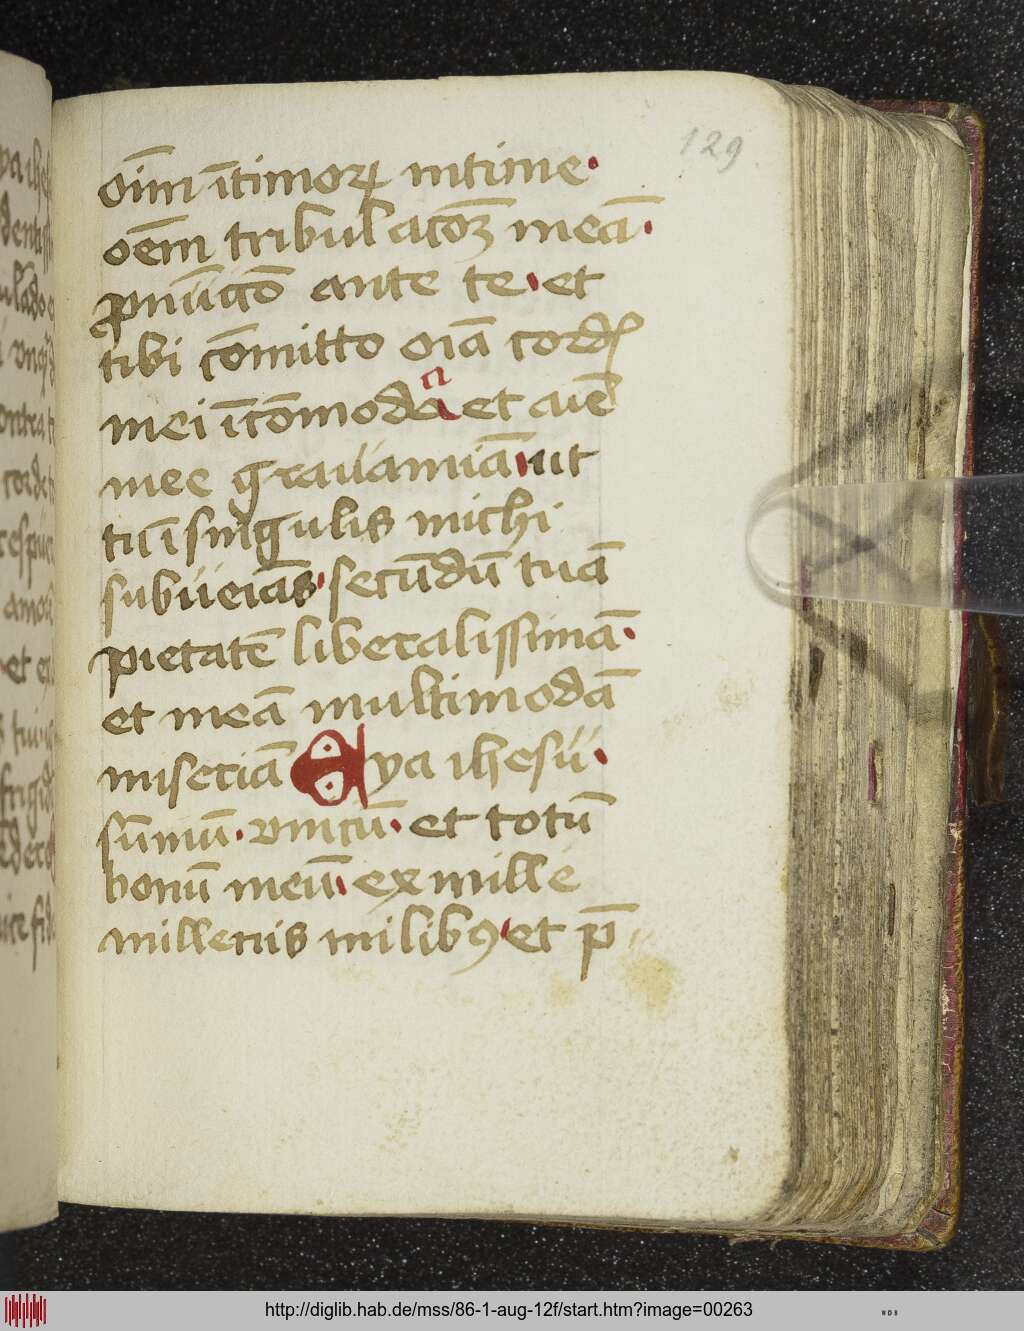 129
oim̄ ītimoꝝ intime·
oēm tribulacōꝫ meā·
ꝓnūcio ante te· et
tibi cōmitto oīa cordꝭ
mei īcōmoda et aīe
mee grauāmīa· ut
in singulis michi
subueias· secūdū tuā
pietatē liberalissimā·
et meā multimodā
miseriā Eya ihesu·
sūmū· vnicū· et totū
bonū meū· ex mille
millenis milibꝰ· et p̄
http://diglib.hab.de/mss/86-1-aug-12f/start.htm?image=00263